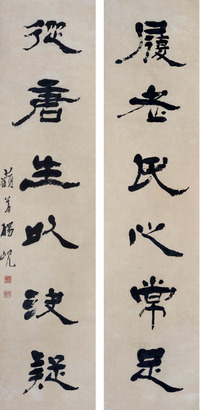 履老氏心常足
從唐生以決疑
藐翁楊峴